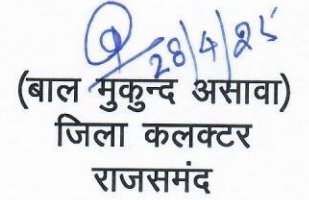 28/4/25
(बाल मुकुन्द असावा)
जिला कलक्टर
राजसमंद